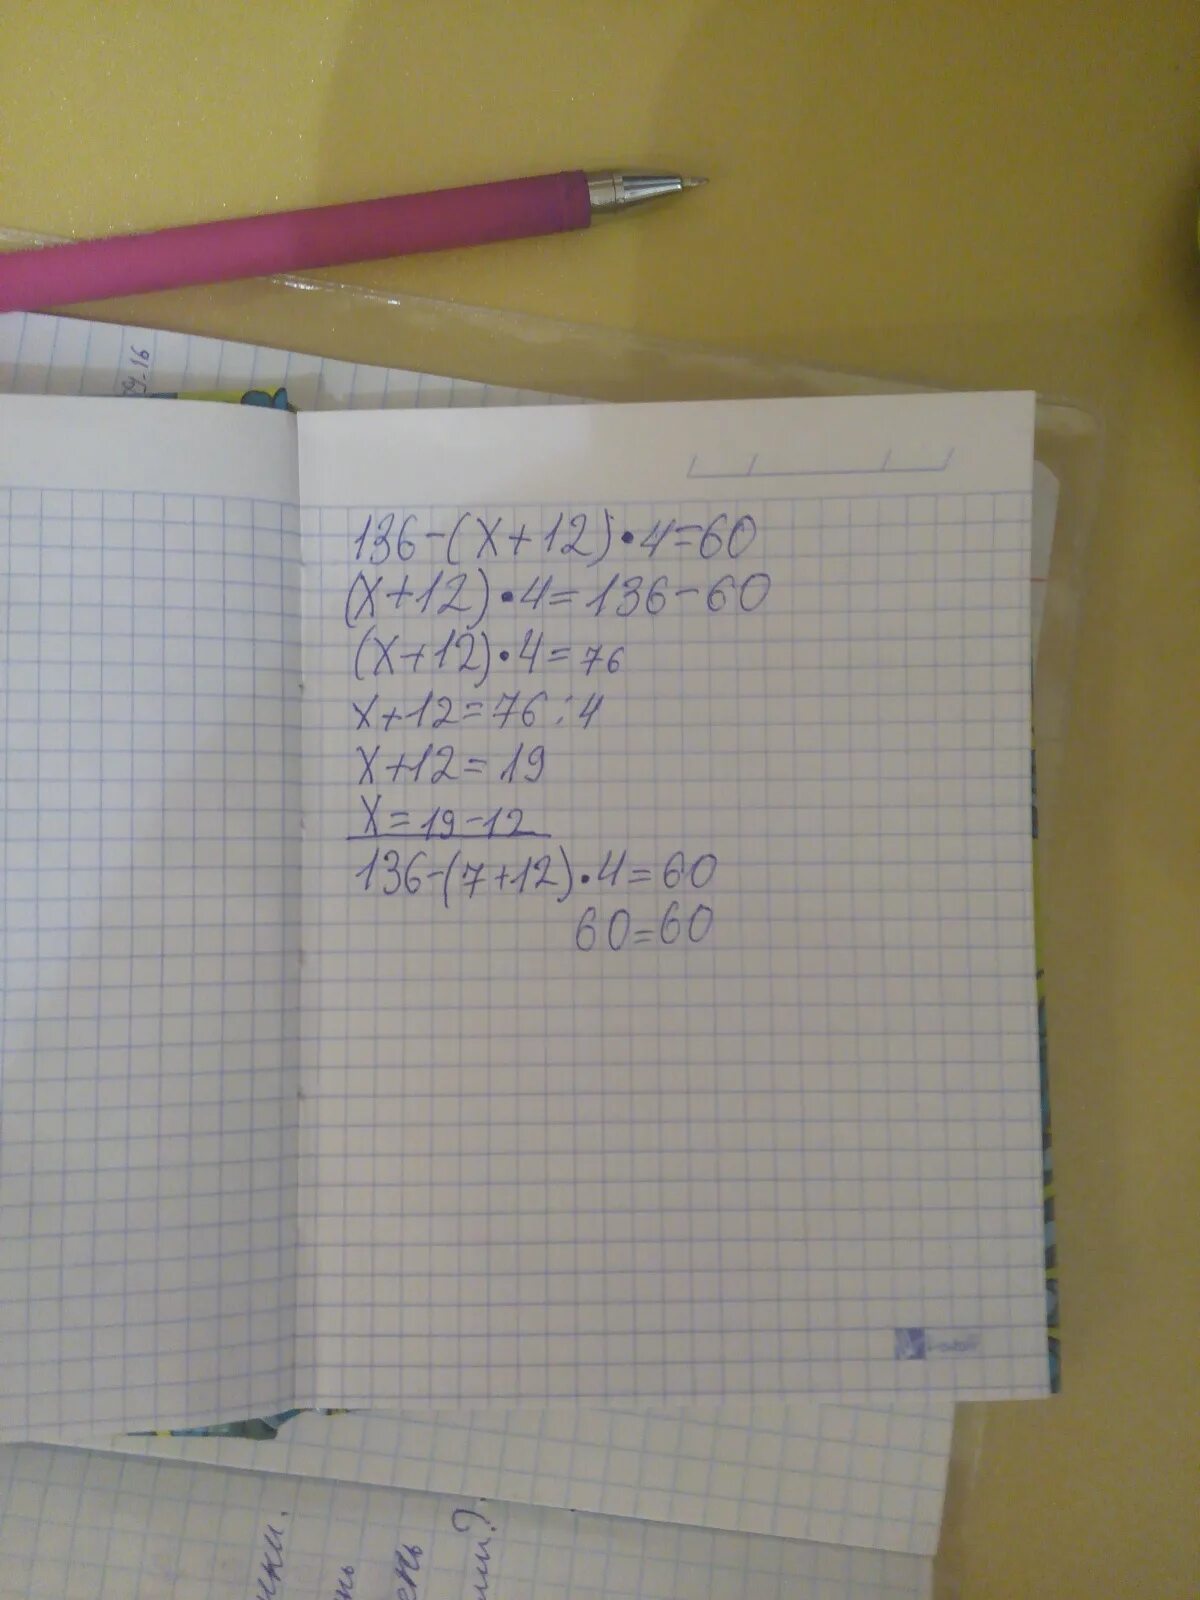 136-(x+12)•4=60
(x+12)•4=136-60
(x+12)•4=76
x+12=76:4
x+12=19
x=19-12
136-(7+12)•4=60
60=60